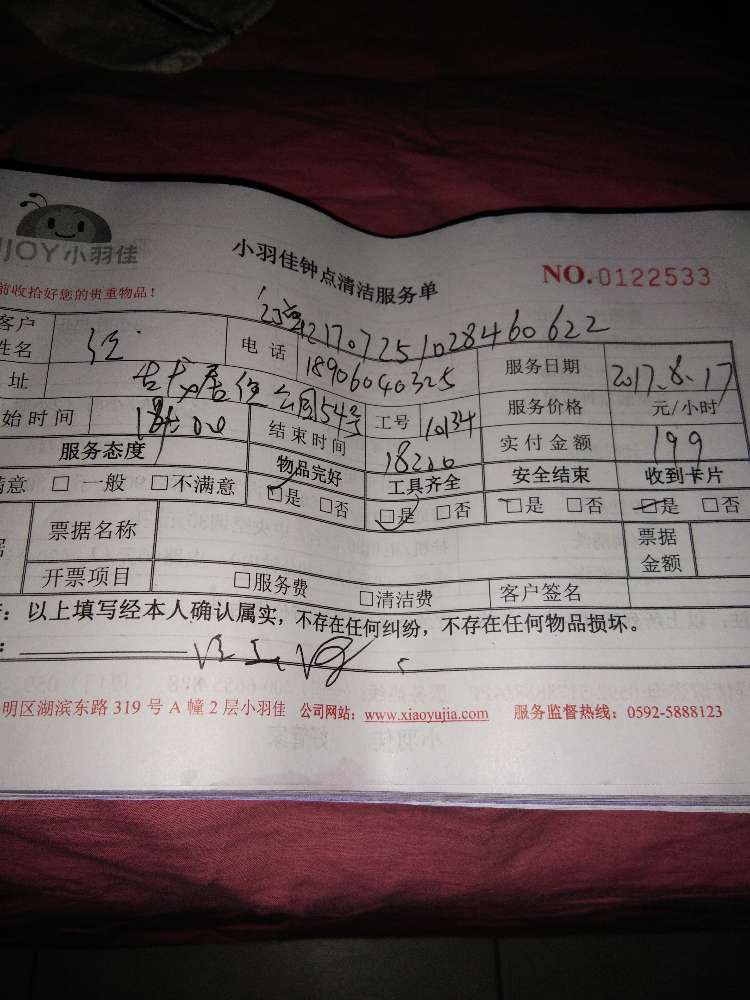 JOY小羽佳
小羽佳钟点清洁服务单
NO.0122533
前收拾好您的贵重物品!
21707251028460622
客户
姓名
电 话
18906040325
服务日期
2017.8.17
址
54号
工号
10134
服务价格
元/小时
始时间
结束时间
实付金额
199
服务态度
物品完好
工具齐全
安全结束
收到卡片
满意 □ 一般 □不满意
□是 □否
□是 □否
□是 □否
□是 □否
票据名称
票据
金额
开票项目
□服务费
□清洁费
客户签名
:以上填写经本人确认属实,不存在任何纠纷,不存在任何物品损坏。
明区湖滨东路 319 号 A 幢 2 层小羽佳 公司网站:www.xiaoyujia.com 服务监督热线:0592-5888123